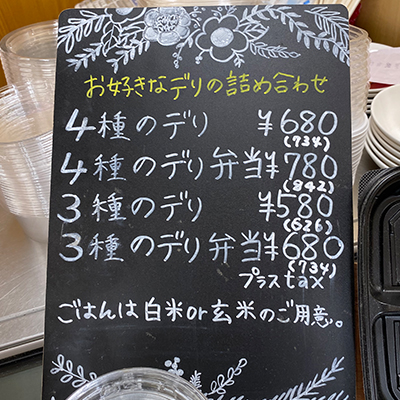 お好きなデリの詰め合わせ
4種のデリ ¥680
(734)
4種のデリ弁当¥780
(842)
3種のデリ ¥580
(626)
3種のデリ弁当¥680
(734)
プラスtax
ごはんは白米or玄米のご用意。